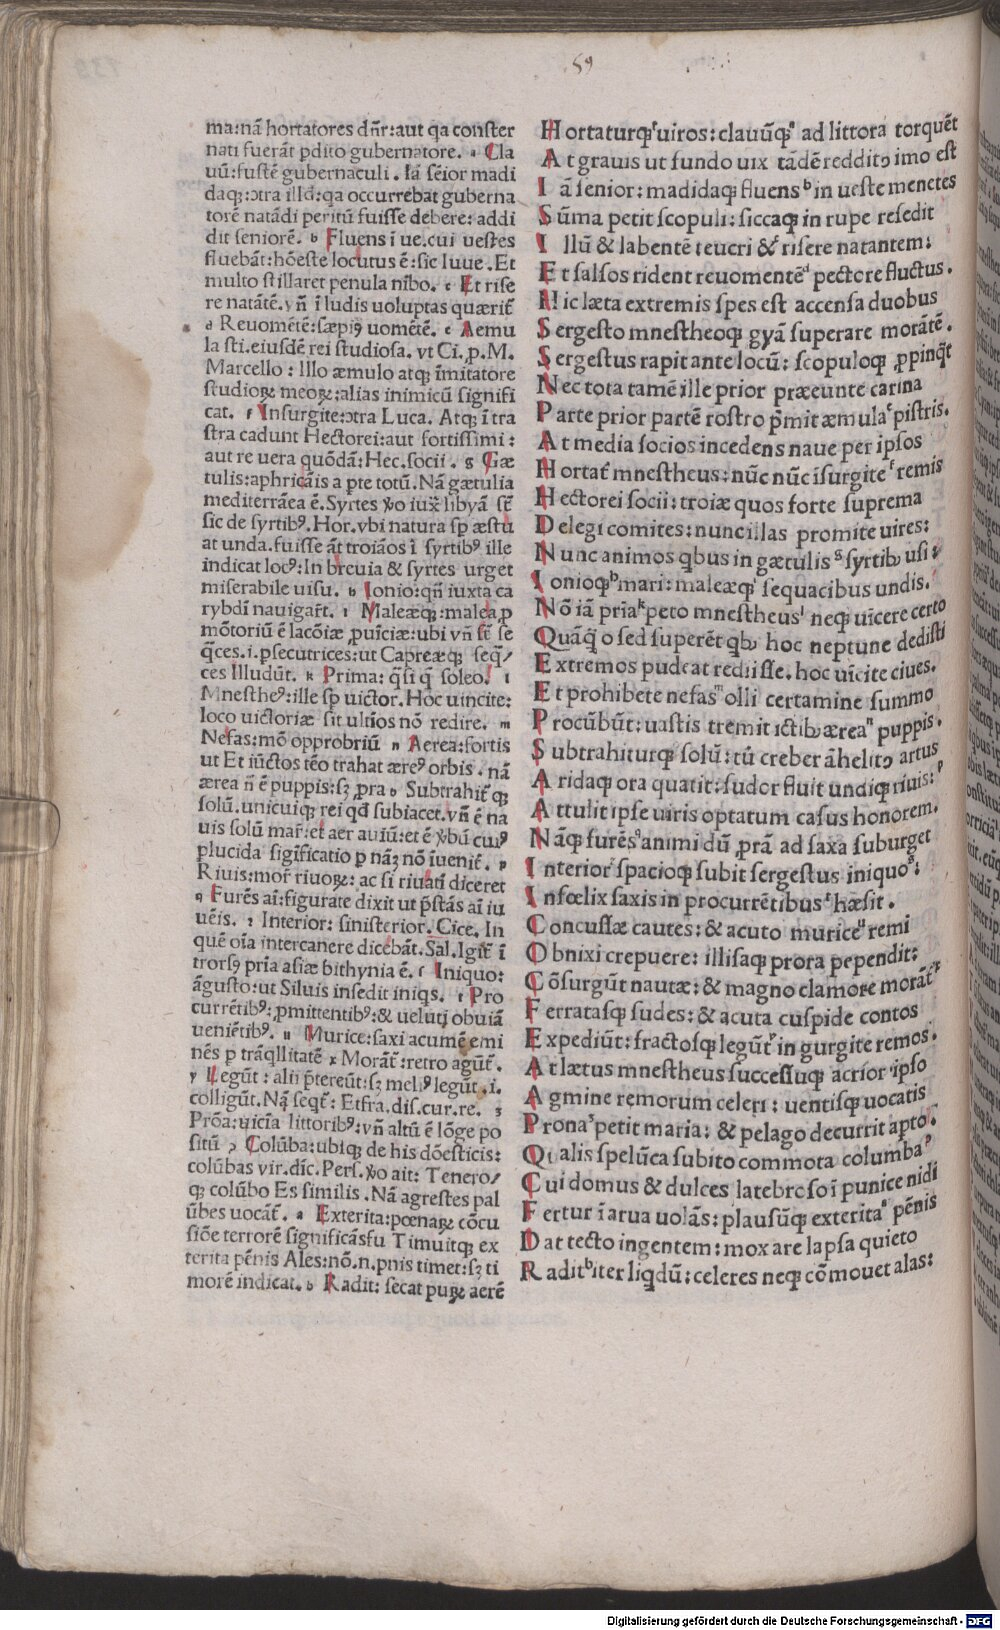 59
ma:nã hortatores dñr:aut qa conster
nati fuerãt pdito gubernatore. a Cla
uũ:fustẽ gubernaculi. Iã sẽior madi
daqꝫ:ɔtra illđ:qa occurrebat guberna
torẽ natãdi peritũ fuisse debere: addi
dit seniorẽ. b Fluens ĩ ue.cui uestes
fluebãt:hõeste locutus ẽ:sic Iuue.Et
multo stillaret penula nĩbo. c Et rise
re natãtẽ.vñ ĩ ludis uoluptas quærit̃
d Reuomẽtẽ:sæpiꝰ uomẽtẽ. e Aemu
la sti.eiusdẽ rei studiosa. vt Ci.p.M.
Marcello: Illo æmulo atqꝫ ĩmitatore
studioꝝ meoꝝ:alias inimicũ signifi
cat. f Insurgite:ɔtra Luca. Atqꝫ ĩ tra
stra cadunt Hectorei:aut fortissimi:
aut re uera quõdã:Hec.socii. g Gæ
tulis:aphricãis a pte totũ. Nã gætulia
mediterrãea ẽ.Syrtes ꝟo iuxͣ libyã st̃
sic de syrtibꝰ.Hor.vbi natura sp æstu
at unda.fuisse ãt troiãos ĩ syrtibꝰ ille
indicat locꝰ:In breuia & syrtes urget
miserabile uisu. h Ionio:qñ iuxta ca
rybdĩ nauigar̃t. i Maleæqꝫ:malea ꝓ
mõtoriũ ẽ lacõiæ ꝓuĩciæ:ubi vñ st̃ se
q̃ces.i.ꝑsecutrices:ut Capreæqꝫ seq̃/
ces Illudũt. k Prima: q̃si q̃ soleo. l
Mnestheꝰ:ille sp uictor. Hoc uincite:
loco uictoriæ sit ultĩos nõ redire. m
Nefas:mõ opprobriũ n Aerea:fortis
ut Et iũctos tẽo trahat æreꝰ orbis. nã
ærea ñ ẽ puppis:sꝫ ꝓra o Subtrahit̃qꝫ
solũ.unicuiqꝫ rei qđ subiacet.vñ ẽ na
uis solũ mar̃:et aer auiũ:et ẽ ꝟbũ cuiꝰ
plucida sigĩficatio p nãꝫ nõ ĩuenit̃. p
Riuis:mor̃ riuoꝝ: ac si riuatĩ diceret
q Furẽs aĩ:figurate dixit ut p̃stãs aĩ iu
uẽis. r Interior: sinisterior. Cice. In
quẽ oĩa intercanere dicebãt.Sal.Igit̃ ĩ
trorsꝰ pria asiæ bithynia ẽ. s Iniquo:
ãgusto:ut Siluis insedit iniqs. t Pro
currẽtibꝰ:ꝓmittentibꝰ:& ueluti obuiã
ueniẽtibꝰ. u Murice:saxi acumẽ emi
nẽs p trãqllitatẽ x Morãt̃:retro agũt̃.
y Legũt: alii p̃tereũt:sꝫ meliꝰ legũt.i.
colligũt.Nã seqt̃: Etfra.dis.cur.re. z
Prõa:uicĩa littoribꝰ:vñ altũ ẽ lõge po
sitũ ɂ Colũba:ubiqꝫ de his dõesticis:
colũbas vir.dĩc.Pers.ꝟo ait: Tenero/
qꝫ colũbo Es similis. Nã agrestes pal
ũbes uocãt̃. a Exterita:pœnaꝝ cõcu
siõe terrorẽ significãsfu Timuitqꝫ ex
terita pẽnis Ales:nõ.n.pnis timet:sꝫ ti
morẽ indicat. b Radit: secat puꝝ aerẽ
Hortaturqꝫ uiros: clauũqꝫᵃ ad littora torquẽt
At grauis ut fundo uix tãdẽ redditɔ imo est
Iã senior: madidaqꝫ fluensᵇ in ueste menetes
Sũma petit scopuli: siccaqꝫ in rupe resedit
Illũ & labentẽ teucri &ᶜ risere natantem:
Et salsos rident reuomentẽᵈ pectore fluctus.
Hic læta extremis spes est accensa duobus
Sergesto mnestheoqꝫ gyã superare morãtẽ.
Sergestus rapit ante locũ: scopuloqꝫ ꝓpinq̃t
Nec tota tamẽ ille prior præeunte carina
Parte prior partẽ rostro p̃mit æmulaᵉ pistris.
At media socios incedens naue per ipsos
Hortat̃ mnestheus: nũc nũc ĩsurgiteᶠ remis
Hectorei socii: troiæ quos forte suprema
Delegi comites: nunc illas promite uires:
Nunc animos qbus in gætulisᵍ syrtibꝫ usi:
Ionioqꝫʰ mari: maleæqꝫⁱ sequacibus undis.
Nõ iã priaᵏ peto mnestheusˡ neqꝫ uĩcere certo
Quãq̃ o sed superẽt qbꝫ hoc neptune dedisti
Extremos pudeat rediisse. hoc uĩcite ciues.
Et prohibete nefasᵐ olli certamine summo
Procũbũt: uastis tremit ictibꝫ æreaⁿ puppis.
Subtrahiturqꝫ solũ: tũ creber ãhelitɔ artus
Aridaqꝫ ora quatit: sudor fluit undiqꝫ riuis:ᵖ
Attulit ipse uiris optatum casus honorem.
Nãqꝫ furẽs animi dũ ꝓrã ad saxa suburget
Interiorʳ spacioqꝫ subit sergestus iniquoˢ:
Infœlix saxis in procurrẽtibusᵗ hæsit.
Concussæ cautes: & acuto muriceᵘ remi
Obnixi crepuere: illisaqꝫ prora pependit:
Cõsurgũt nautæ: & magno clamore morãt̃ˣ
Ferratasqꝫ sudes: & acuta cuspide contos
Expediũt: fractosqꝫ legũt̃ʸ in gurgite remos.
At lætus mnestheus successuqꝫ acrior ipso
Agmine remorum celeri: uentisqꝫ uocatis
Pronaᶻ petit maria: & pelago decurrit apto.
Qualis spelũca subito commota columbaˀ
Cui domus & dulces latebre soĩ punice nidi
Fertur ĩ arua uolãs: plausũqꝫ exteritaᵃ pẽnis
Dat tecto ingentem: mox are lapsa quieto
Raditᵇ iter liqdũ: celeres neqꝫ cõmouet alas:
Digitalisierung gefördert durch die Deutsche Forschungsgemeinschaft - DFG